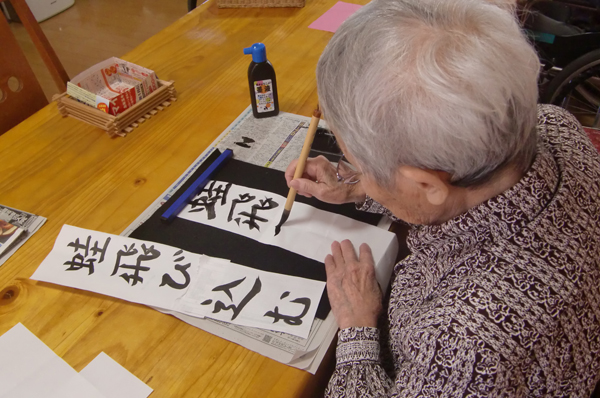 蛙飛び込む
蛙飛